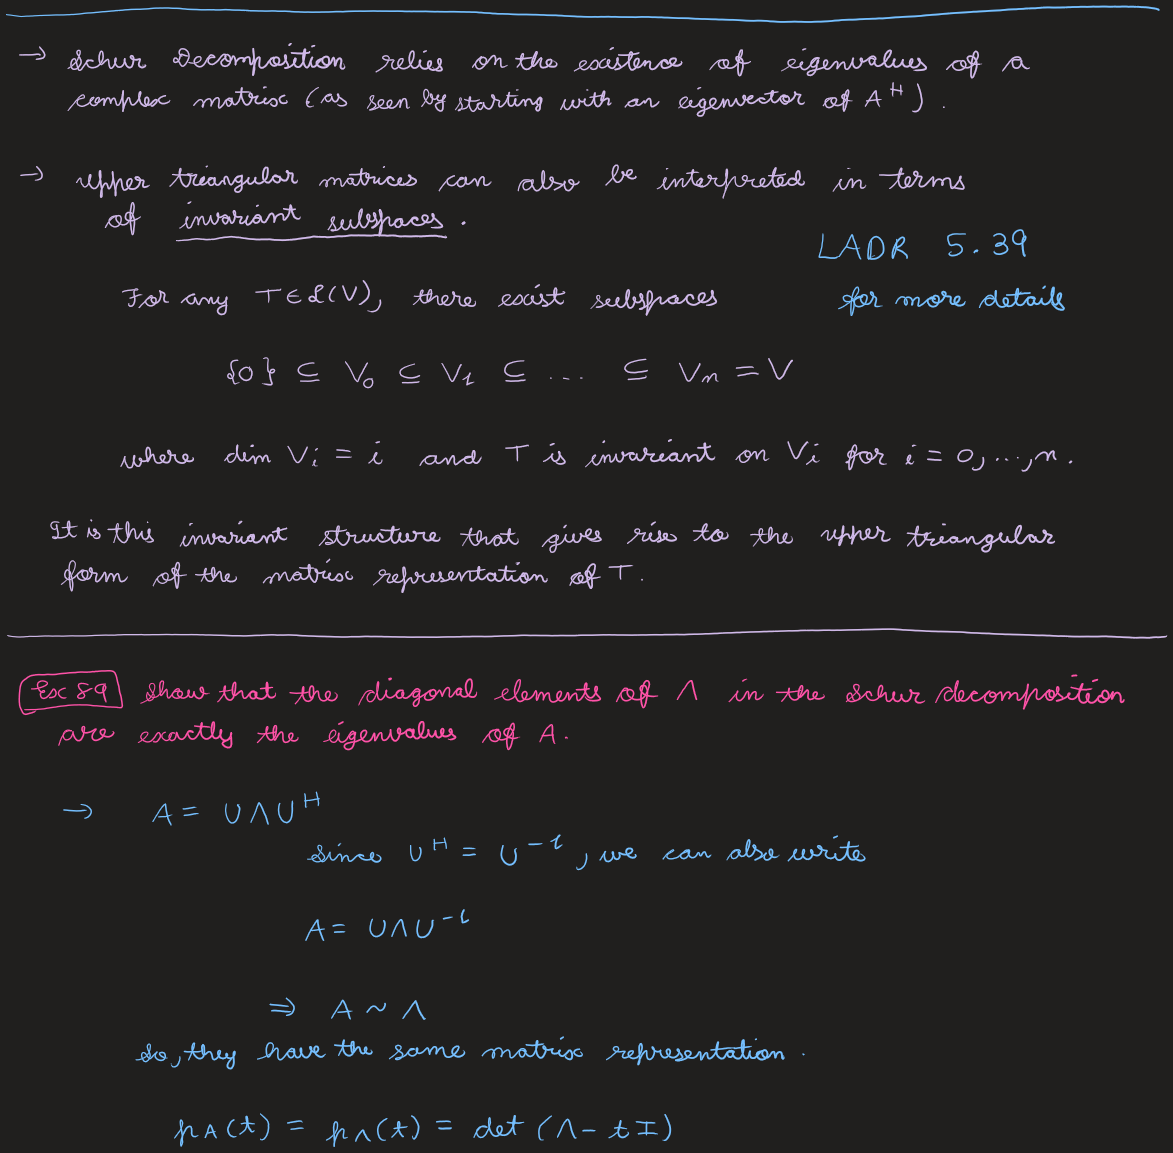 → Schur Decomposition relies on the existence of eigenvalues of a
complex matrix (as seen by starting with an eigenvector of Aᴴ).
→ Upper triangular matrices can also be interpreted in terms
of invariant subspaces.
LADR 5.39
For any T ∈ ℒ(V), there exist subspaces
for more details
{0} ⊆ V₀ ⊆ V₁ ⊆ ... ⊆ Vₙ = V
where dim Vᵢ = i and T is invariant on Vᵢ for i = 0, ..., n.
It is this invariant structure that gives rise to the upper triangular
form of the matrix representation of T.
Ex 89 Show that the diagonal elements of Λ in the Schur decomposition
are exactly the eigenvalues of A.
→ A = UΛUᴴ
Since Uᴴ = U⁻¹, we can also write
A = UΛU⁻¹
⇒ A ~ Λ
So, they have the same matrix representation.
p_A(t) = p_Λ(t) = det (Λ - tI)